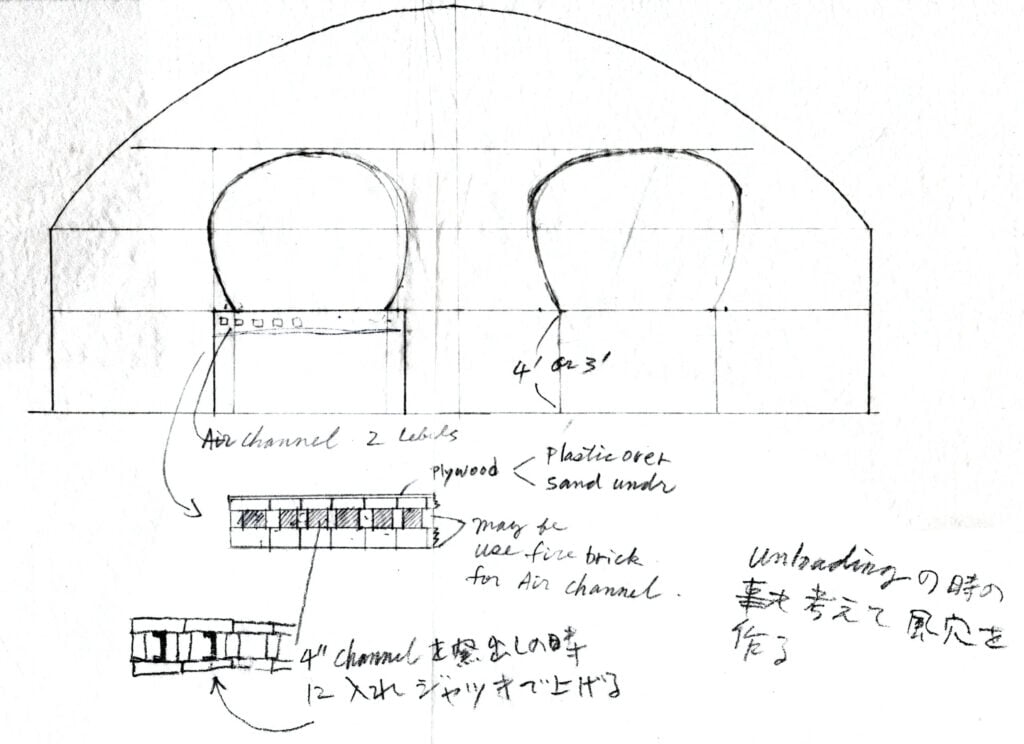 4' or 3'
Air channel 2 Lebels
Plywood
Plastic over
sand undr
may be
use fire brick
for Air channel.
4" channelを窯出しの時
に入れジャッキで上げる
unloadingの時の
事も考えて風穴を
作る